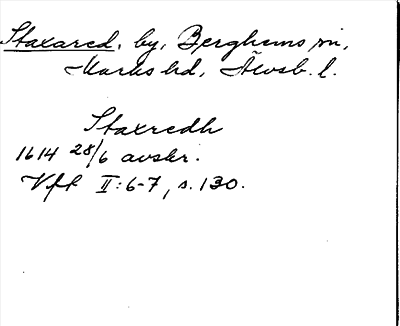 Staxared, by, Berghems sn,
Marks hd, Älvsb. l.
Staxredh
1614 28/6 avskr.
Vff II:6-7, s. 130.